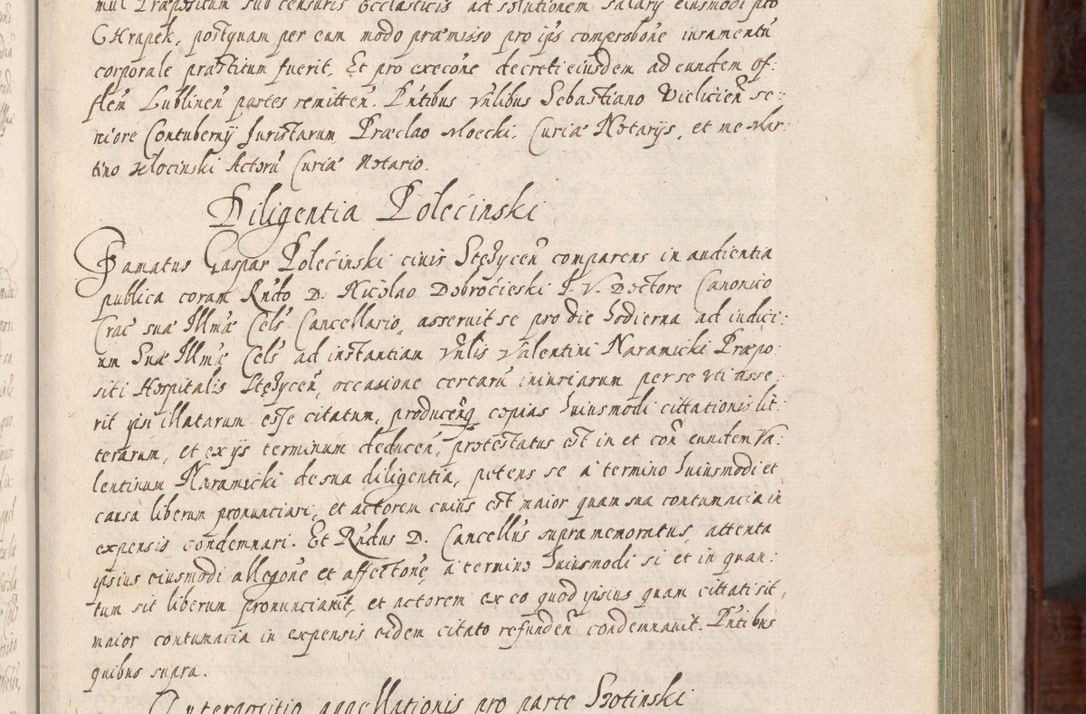 mul Præpositum sub censuris Ecclasticis ad solutionem salarij eiusmodi pro
CHrapek, postquam per eum modo præmisso pro ips comprobone iuramentu
corporale præstitum fuerit, Et pro execone decreti eiusdem ad eundem of:
flem Lublinen partes remitten. Pntibus Vnlibus Sebastiano Vielicień se:
niore Contubernij Juristarum Præclao Moecki, Curiæ Notarijs, et me Mar:
tino Kłocinski Actoru Curiæ Notario.
Diligentia Polecinski
Famatus Gaspar Polecinski ciuis Stęzycen comparens in audientia
publica coram Rndo D. Nicolao Dobrocieski J. V. Doctore Canonico
Crac suæ Illmæ Cels Cancellario, asseruit se pro die hodierna ad iudici:
um Suæ Illmæ Cels ad instantiam Vnlis Valentini Naramicki Præpo:
siti Hospitalis Stęzycen, occasione certaru iniuriarum per se vti asse:
rit ipsi illatarum esse citatum, producenq copias huiusmodi cittationis lit:
terarum, et ex ijs terminum deducen, protestatus est in et con eundem Va:
lentinum Naramicki de sua diligentia, petens se a termino huiusmodi et
causa liberum pronunciari, et actorem cuius est maior quam sua contumacia in
expensis condemnari. Et Rndus D. Cancellus supramemoratus, attenta
ipsius eiusmodi allegone et affectone, a termino huiusmodi si et in quan:
tum sit liberum pronunciauit, et actorem ex eo quod ipsius quam cittati sit,
maior contumacia in expensis eidem citato refunden condemnauit. Pntibus
quibus supra.
Interpositio appellationis pro parte Szotinski